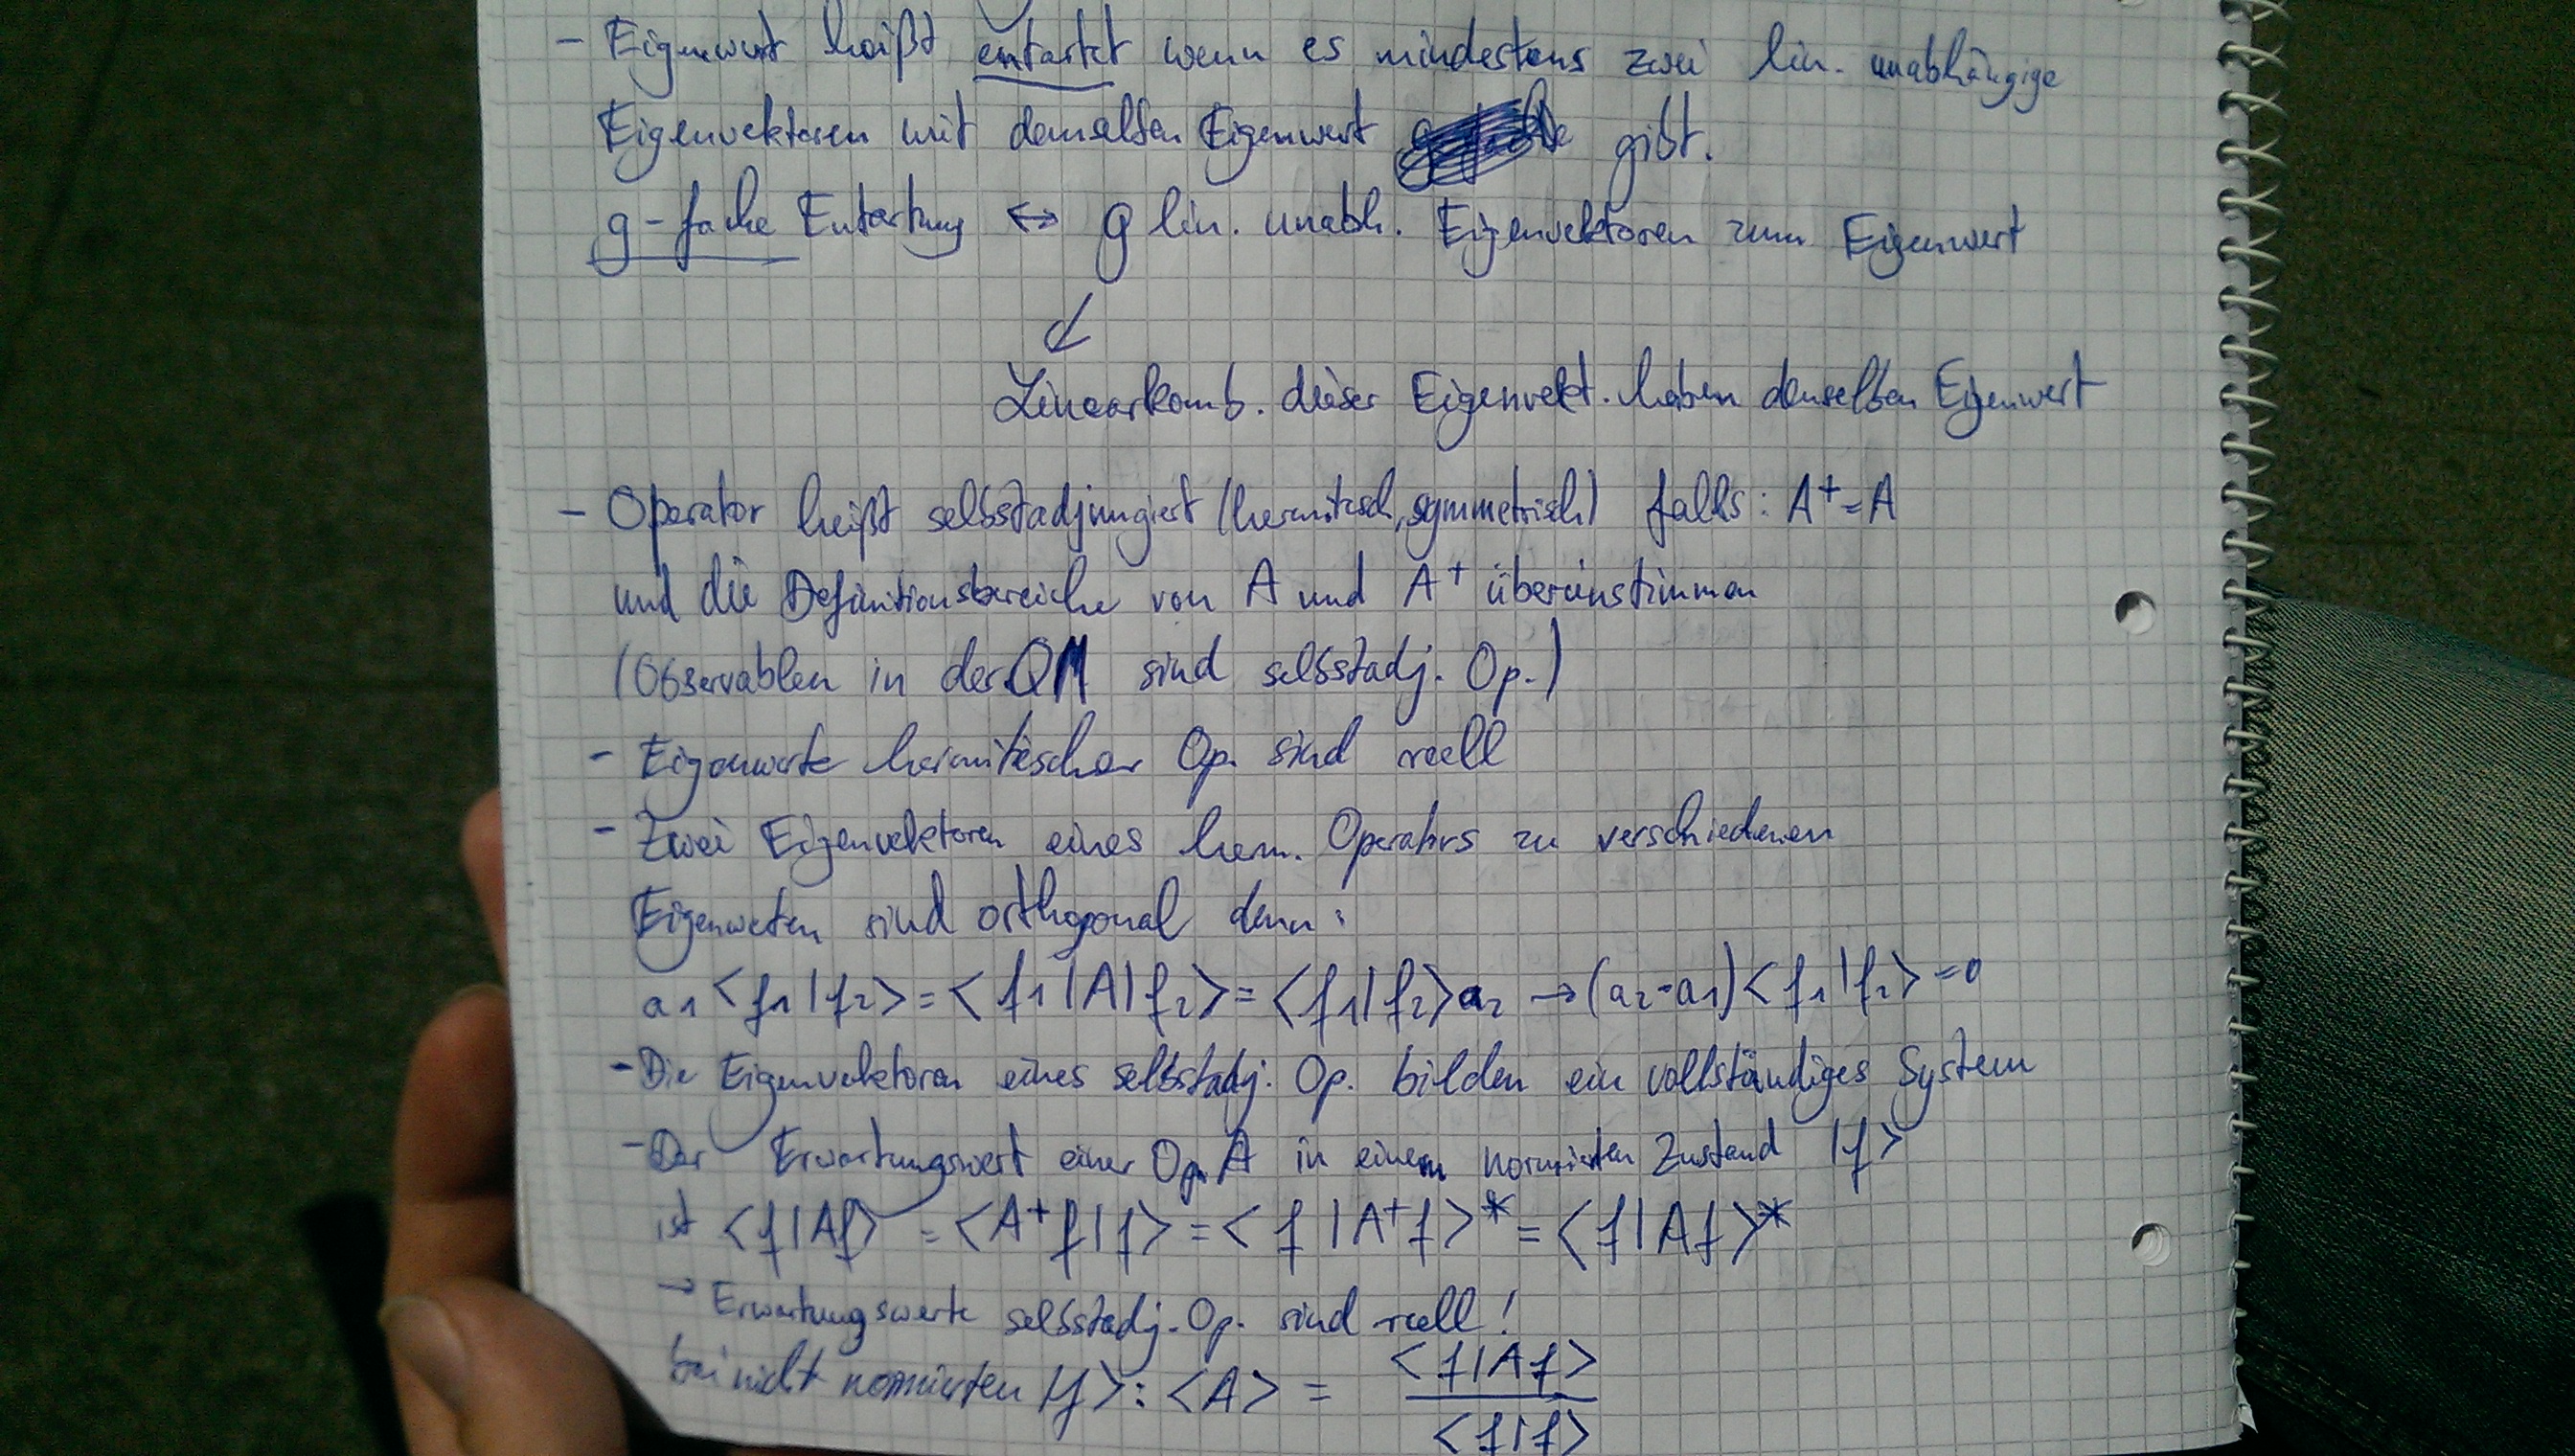 - Eigenwert heißt entartet wenn es mindestens zwei lin. unabhängige
Eigenvektoren mit demselben Eigenwert gibt.
g-fache Entartung ↔ g lin. unabh. Eigenvektoren zum Eigenwert
↙
Linearkomb. dieser Eigenvekt. haben denselben Eigenwert
- Operator heißt selbstadjungiert (hermitesch, symmetrisch) falls: A⁺=A
und die Definitionsbereiche von A und A⁺ übereinstimmen
(Observablen in der QM sind selbstadj. Op.)
- Eigenwerte hermitescher Op. sind reell
- Zwei Eigenvektoren eines herm. Operators zu verschiedenen
Eigenweten sind orthogonal denn:
a₁<f₁|f₂> = <f₁|A|f₂> = <f₁|f₂>a₂ → (a₂-a₁)<f₁|f₂> = 0
- Die Eigenvektoren eines selbstadj. Op. bilden ein vollständiges System
- Der Erwartungswert einer Op. A in einem normierten Zustand |f>
ist <f|Af> = <A⁺f|f> = <f|A⁺f>* = <f|Af>*
→ Erwartungswerte selbstadj. Op. sind reell!
bei nicht normierten |f>: <A> = <f|Af>
<f|f>